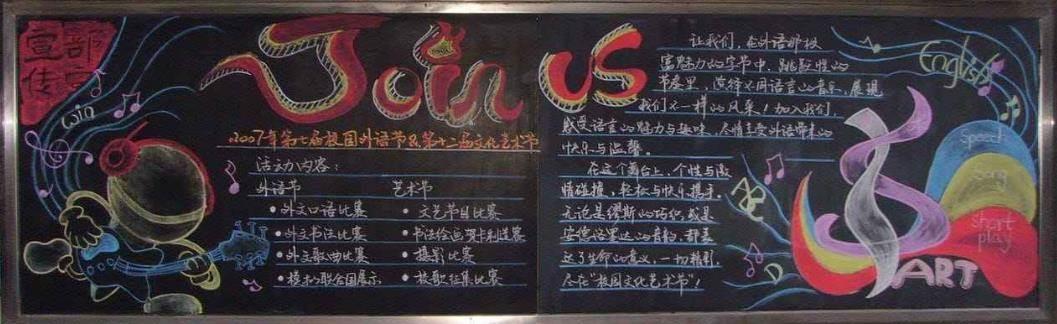 宣传部宣
win
Join us
2007年第七届校园外语节及第十二届文化艺术节
活动内容:
外语节 艺术节
• 外文口语比赛 • 文艺节目比赛
• 外文书法比赛 • 书法绘画贺卡制送赛
• 外文歌曲比赛 • 摄影比赛
• 模拟联合国展示 • 校歌征集比赛
让我们,在外语那极
富魅力的字节中,跳跃性的
节奏里,演绎不同语言的音乐,展现
我们不一样的风采!加入我们,
感受语言的魅力与趣味,尽情享受外语带来的
快乐与温馨。
在这个舞台上,个性与激
情碰撞,轻松与快乐携手。
无论是缪斯的巧织,或是
安德洛里达的青韵,都表
达了生命的意义,一切精彩,
尽在“校园文化艺术节”!
English
speech
song
short
play
ART